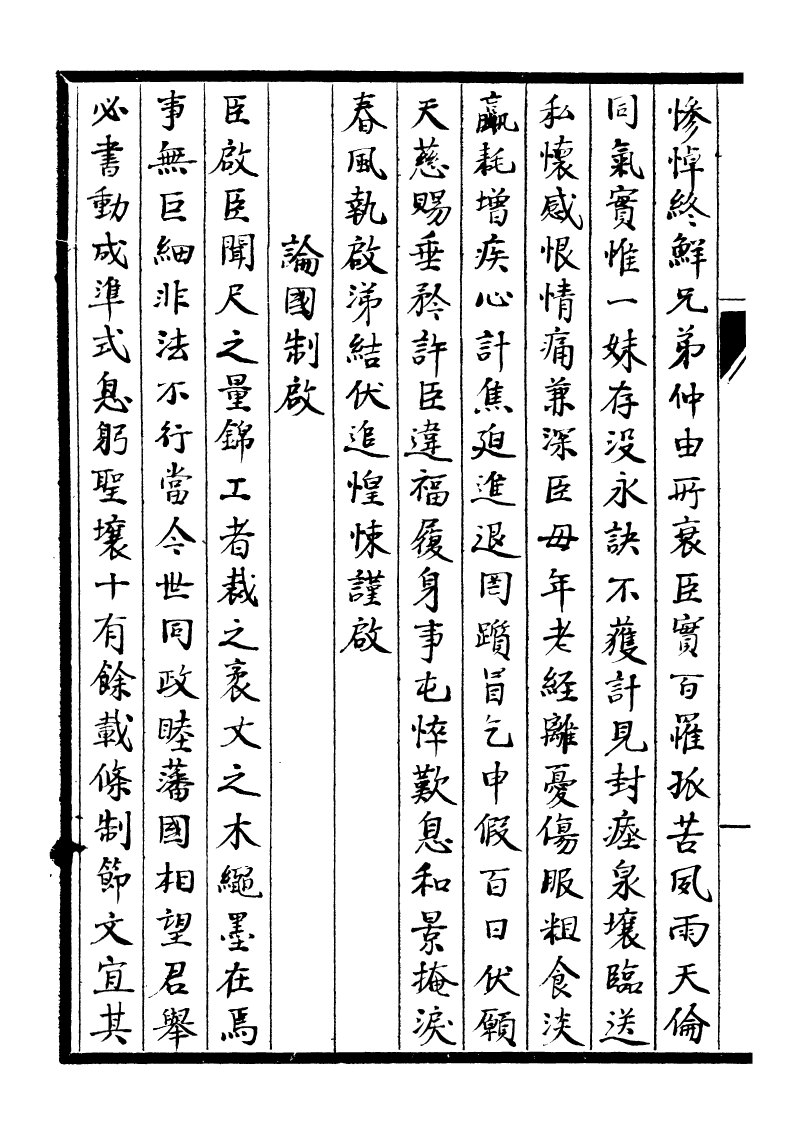 慘悼終鮮兄弟仲由所哀臣實百罹孤苦風雨天倫
同氣實惟一妹存沒永訣不獲計見封瘞泉壤臨送
私懷感恨情痛兼深臣母年老經離憂傷服粗食淡
羸耗增疾心計焦迫進退罔躓冒乞申假百日伏願
天慈賜垂矜許臣違福履身事屯悴歎息和景掩淚
春風執啟涕結伏追惶悚謹啟
論國制啟
臣啟臣聞尺之量錦工者裁之袤丈之木繩墨在焉
事無巨細非法不行當今世同政睦藩國相望君舉
必書動成準式息躬聖壤十有餘載條制節文宜其